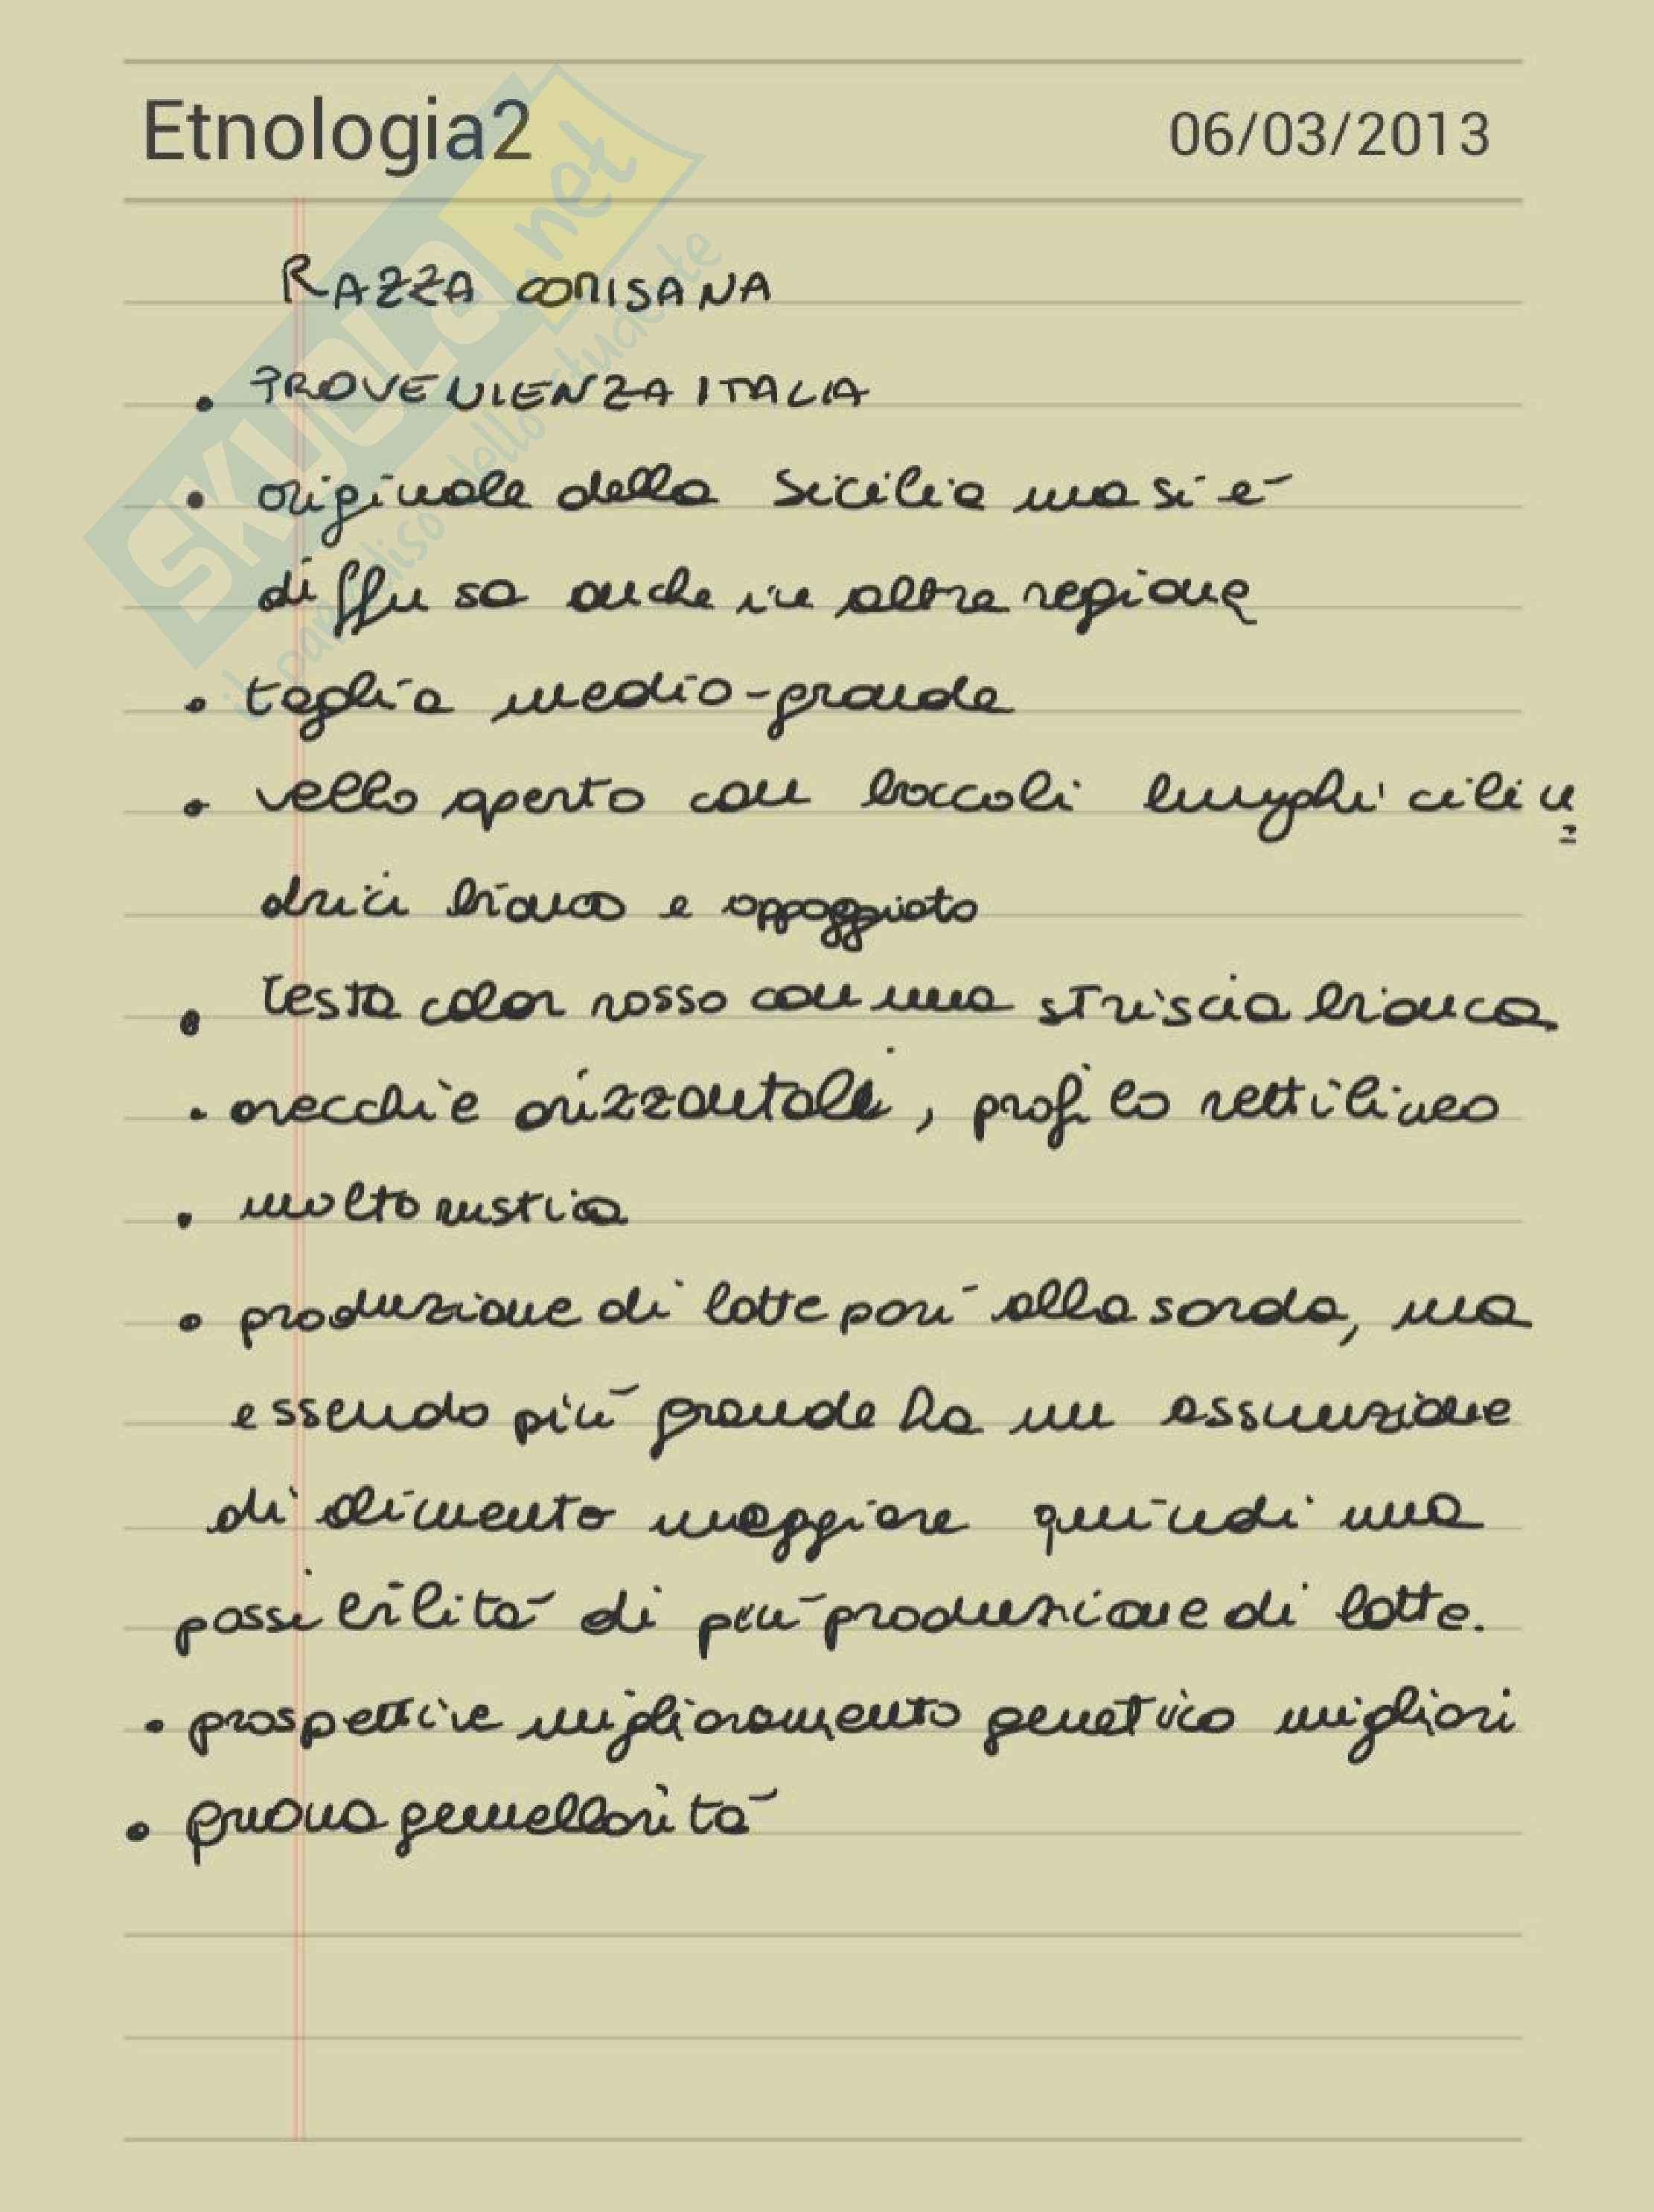 Etnologia2 06/03/2013
RAZZA COMISANA
• PROVENIENZA ITALIA
• originale della Sicilia ma si è
diffusa anche in altre regione
• taglia medio-grande
• vello aperto con boccoli lunghi cilin
drici bianco e appoggiato
• testa color rosso con una striscia bianca
• orecchie orizzontali, profilo rettilineo
• molto rustica
• produzione di latte pari alla sarda, ma
essendo più grande ha un assunzione
di alimento maggiore quindi una
possibilità di più produzione di latte.
• prospettive miglioramento genetico migliori
• gemellarità
SKUOLA.net
il paradiso dello studente